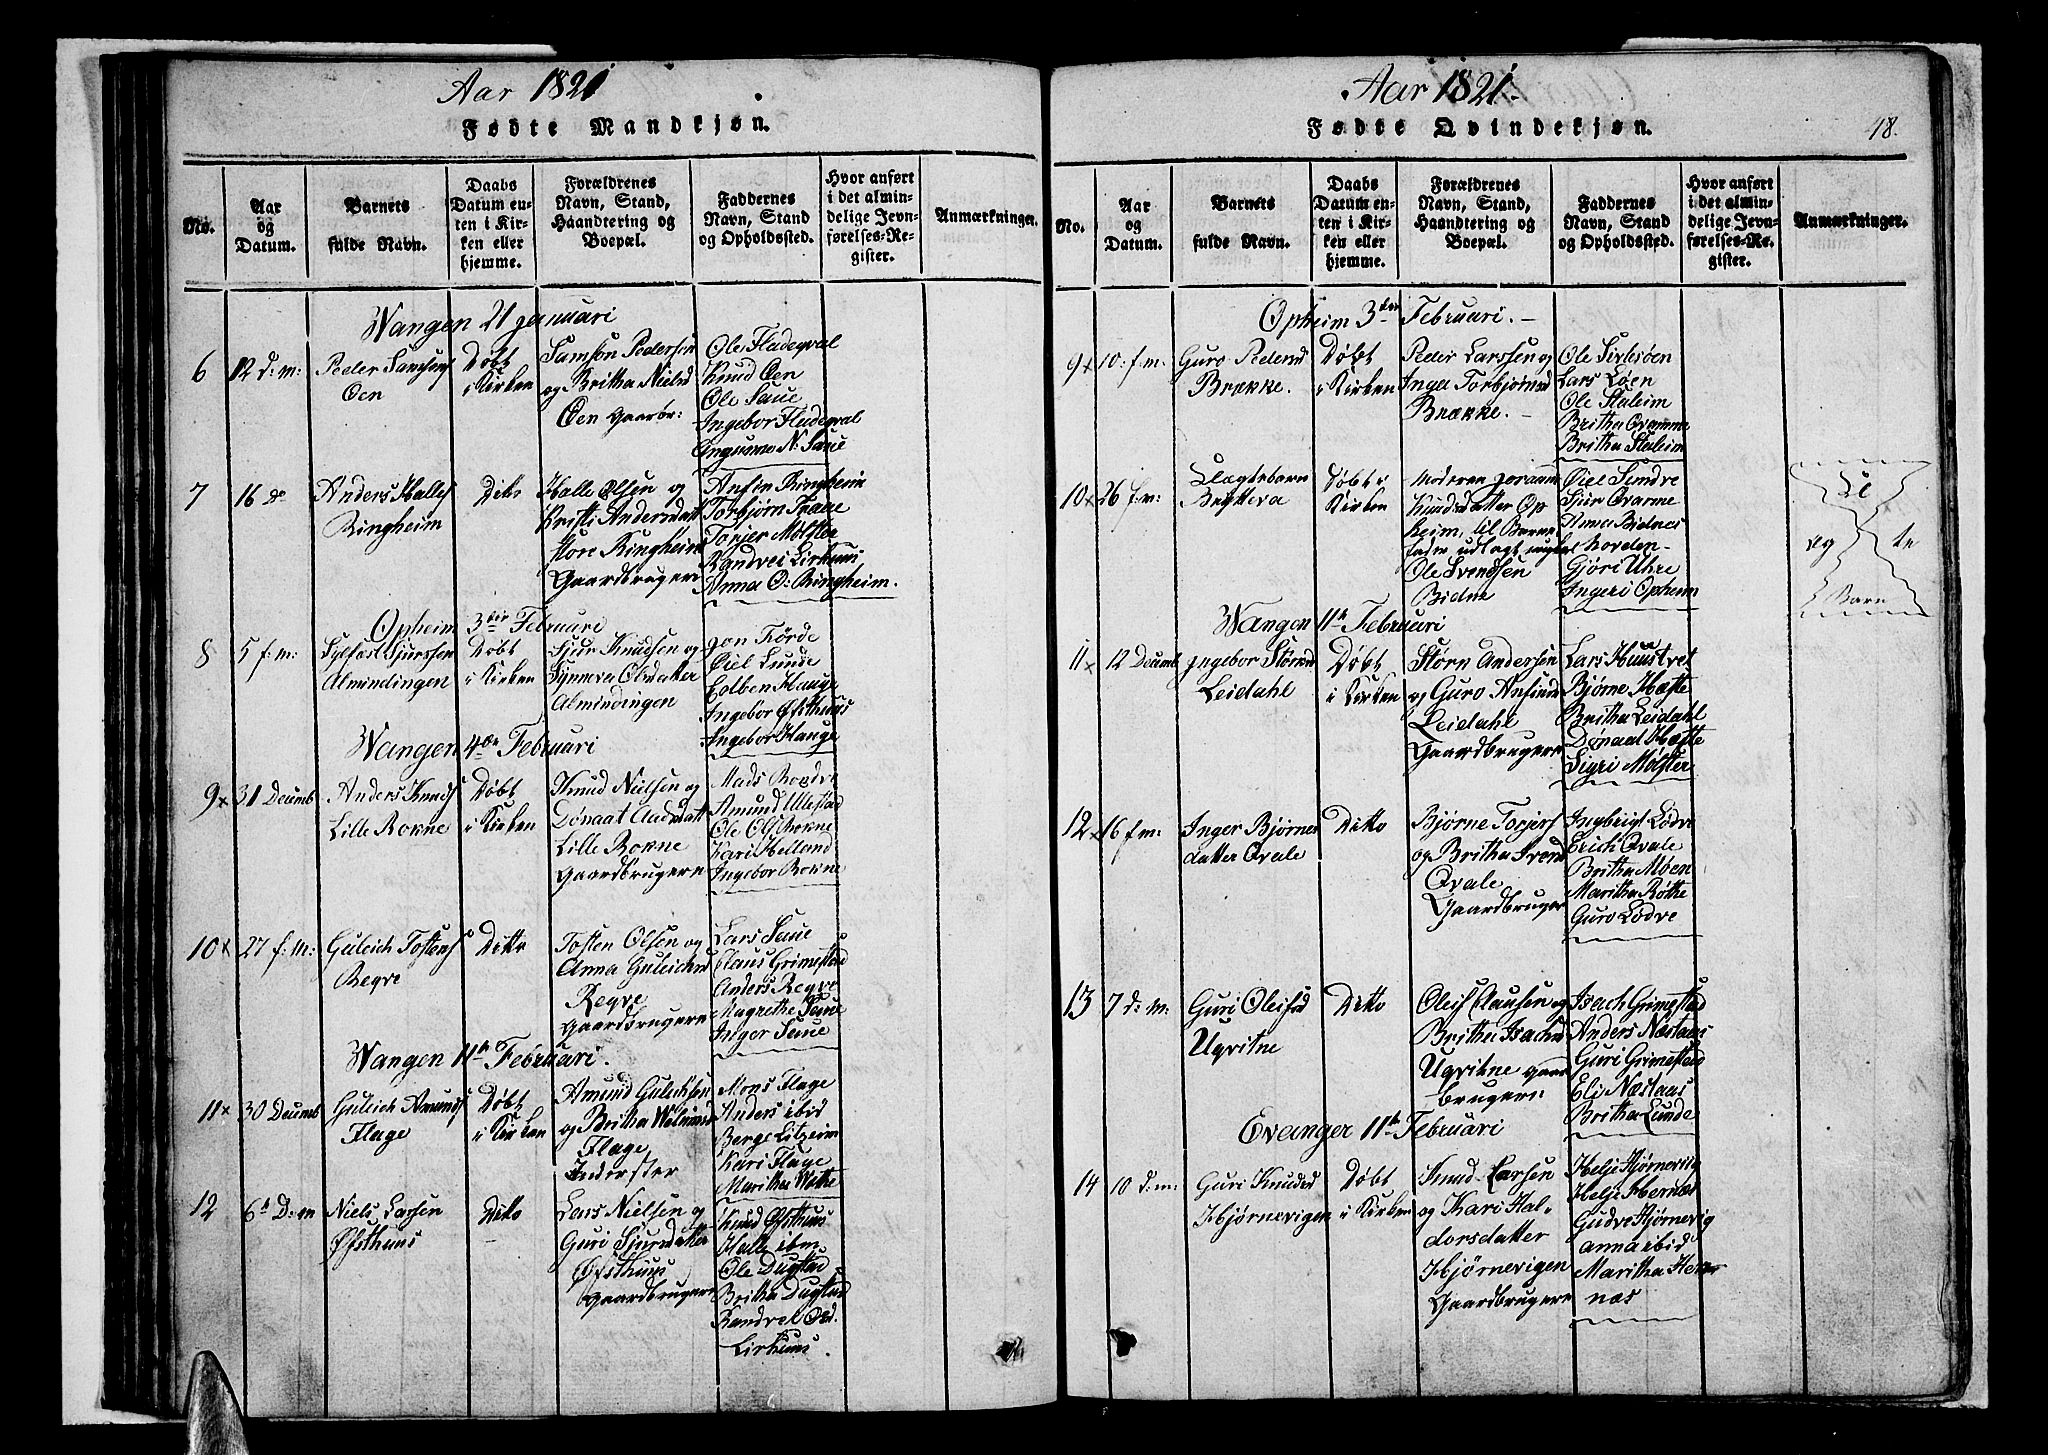 Aar 1821
Fødte Mandkjøn.
No.
Aar
og
Datum.
Barnets
fulde Navn.
Daabs
Datum en-
ten i Kir-
ken eller
hjemme.
Forældrenes
Navn, Stand,
Haandtering og
Boepæl.
Faddernes
Navn, Stand
og Opholdssted.
Hvor anført
i det almin-
delige Jevn-
førelses-Re-
gister.
Anmærkninger.
Wangen 21 januari
6
12 d: m:
Peder Samsens
Øen
Døbt
i Kirken
Samson Pedersen
og Britha Nielsd
Øen Gaardbr:
Ole Fladeqval
Knud Øen
Ole Saue
Ingebor Fladeqval
N: Saue
7
16 do
Anders Halles
Ringheim
Dito
Halle Olsen og
Kristi Andersdatt
store Ringheim
Gaardbrugere
Ansin Ringheim
Torbjørn Traae
Torjer Mølster
Randvei Lirhuus
Anna O: Ringheim.
Opheim 3die Februari
8
5 f: m:
Sylfæst Sjurssen
Almindingen
Døbt
i Kirken
Sjur Knudsen og
Synneva Olsdatter
Almindingen
Jon Førde
Øiel Sunde
Colben Hauge
Ingebor Østhuus
Ingebor Hauge
Wangen 4de Februari
9 x
31 Decemb
Anders Knuds
Lille Rokne
Døbt
i Kirken
Knud Nielsen og
Dønaat Andersdatt
Lille Rokne
Gaardbrugere
Mads Rondve
Amund Ullestad
Ole Ols Rokne
Kari Helland
Ingebor Rokne
10 x
27 f: m:
Guleich Tostens
Reqve
Ditto
Tosten Olsen og
Anna Guleichsd
Reqve
Gaardbrugere
Lars Saue
Claus Grimestad
Anders Reqve
Magrethe Saue
Inger Saue
Wangen 11te Februari.
11 x
30 Decemb
Guleich Amunds
Flage
Døbt
i Kirken
Amund Guleichsen
og Britha
Flage
Inderster
Mons Flage
Anders ibid
Berge Litzheim
Kari Flage
Maritha Withe
12
6te D: m
Niels Larsen
Østhuus
Ditto
Lars Nielsen og
Guri Sjursdatter
Østhuus
Gaardbrugere
Knud Østhuus
Halle ibm
Ole Dugstad
Britha Dugstad
Randvei Ols d.
Lirhuus.
Aar 1821.
Fødte Qvindekjøn.
18.
No.
Aar
og
Datum.
Barnets
fulde Navn.
Daabs
Datum en-
ten i Kir-
ken eller
hjemme.
Forældrenes
Navn, Stand,
Haandtering og
Boepæl.
Faddernes
Navn, Stand
og Opholdssted.
Hvor anført
i det almin-
delige Jevn-
førelses-Re-
gister.
Anmærkninger.
Opheim 3die Februari.
9 x
10: f. m:
Guro Pedersd
Brække.
Døbt
i Kirken
Peder Larssen og
Inger Torbjørnsd
Brække.
Ole Sirlesøen
Lars Løen
Ole Staleim
Britha Qvamme
Britha Staleim
10 x
26 f: m:
Slagtebarn
Brytteva
Døbt i
Kirken
Moderen Joraand
Knudsdatter Op
heim, til Barne
fader udlagt ungkal
Ole Svendsen
Bidne
Øiel Sundre
Sjur Qvarme
Anna Bidnes
Norden-
Gjøri Uhre
Ingeri Opheim
Uægte
Barn
Wangen 11te Februari
11 x
12 Decemb
Ingebor Størksd
Leidahl
Døbt
i Kirken
Størk Andersen
og Guro Ansinsd
Leidahl
Gaardbrugere
Lars Huustvet
Bjørne Hæfte
Britha Leidahl
Dønaat Hæfte
Sigri Mølster
12 x
16 f m:
Inger Bjørnes
datter Qvale
Ditto
Bjørne Torjers
og Britha Svend
Qvale
Gaardbruger
Ingbrigt Lødve
Erich Qvale
Britha Møen
Maritha Røthe
Guro Lødve
13
7 d: m:
Guri Oleifsd
Uqvitne
Ditto
Oleif Aausen og
Britha Isachsd
Uqvitne gaard
brugere
Isach Grimestad
Anders Næstaas
Guri Grimestad
Eli Næstaas
Britha Lunde
Evanger 11te Februari
14
10 d: m:
Guri Knudsd
Hjørnevigen
Døbt
i Kirken
Knud Larsen
og Kari Hal-
dorsdatter
Hjørnevigen
Gaardbrugere
Helje Hjørnevig
Helje Hernæs
Gudve Hjørnevig
Anna ibid
Maritha Her
næs